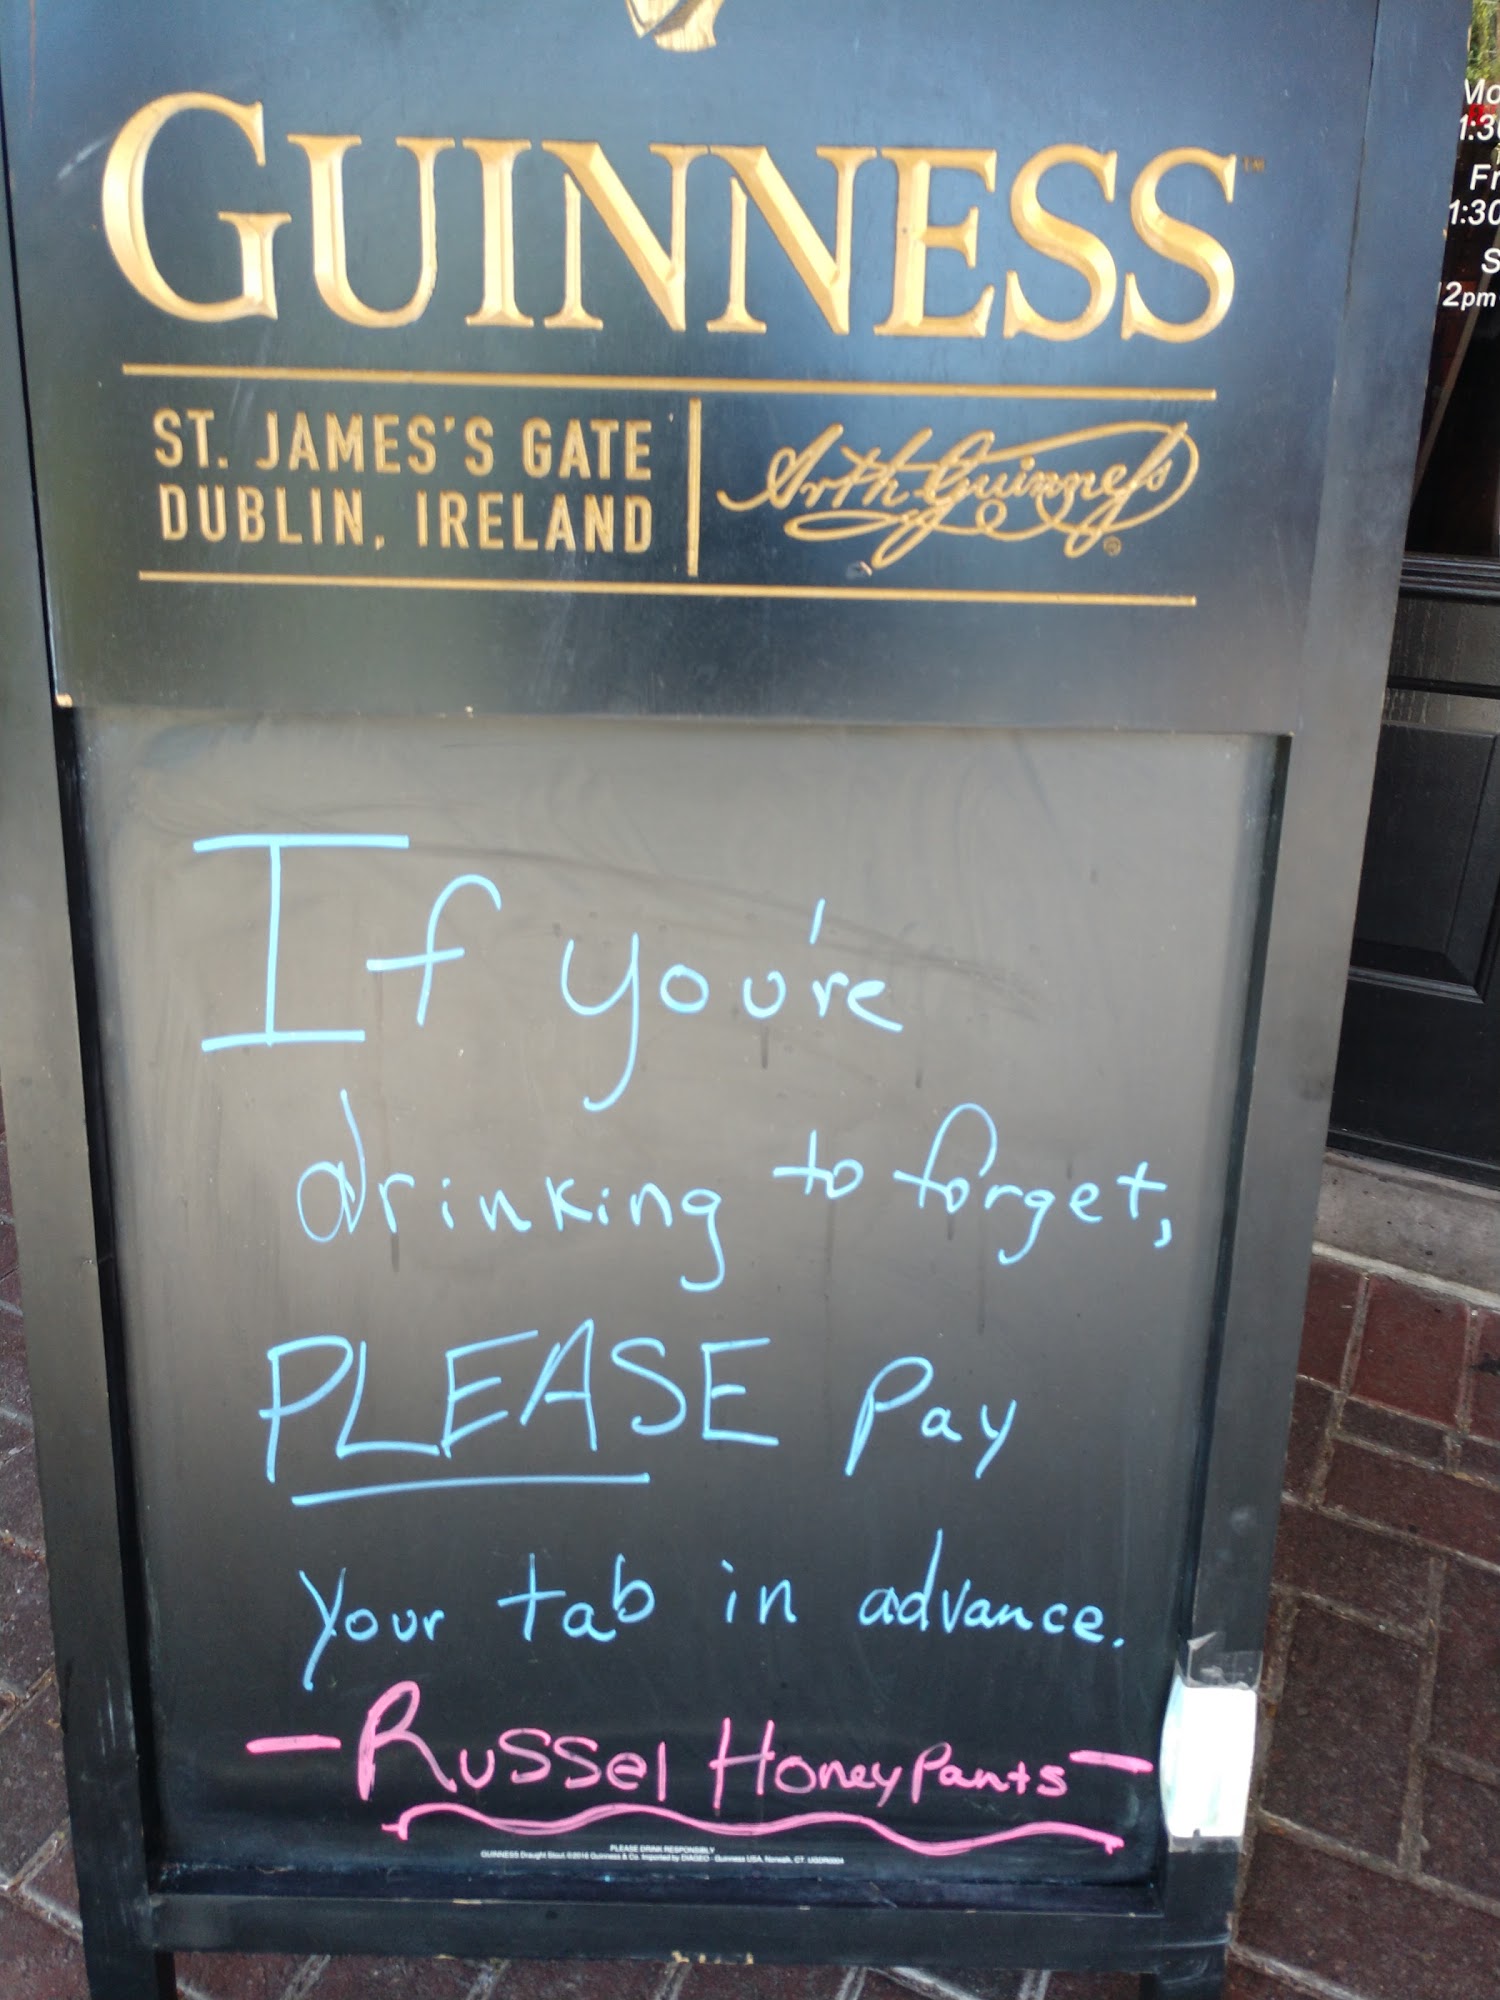 GUINNESS™
ST. JAMES'S GATE
DUBLIN, IRELAND
Arth Guinness ®
If you're
drinking to forget,
PLEASE pay
your tab in advance.
- Russel HoneyPants -
PLEASE DRINK RESPONSIBLY
GUINNESS Draught Stout ©2016 Guinness & Co. Imported by DIAGEO - Guinness USA, Norwalk, CT.
Mo
1:3
Fr
1:30
S
12pm